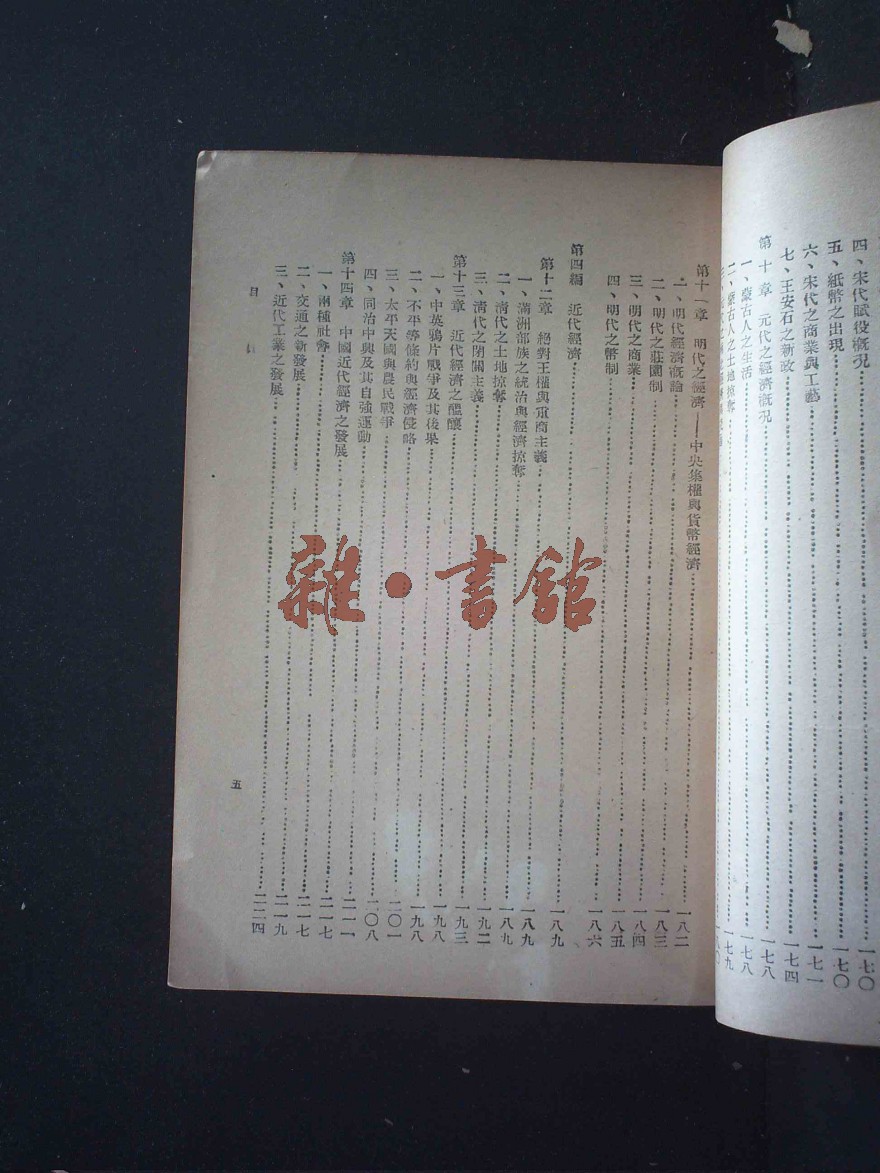 四、宋代賦役概況⋯⋯一七〇
五、紙幣之出現⋯⋯一七〇
六、宋代之商業與工藝⋯⋯一七一
七、王安石之新政⋯⋯一七四
第十章 元代之經濟概況⋯⋯一七八
一、蒙古人之生活⋯⋯一七八
二、蒙古人之土地掠奪⋯⋯一七九
一八〇
第十一章 明代之經濟——中央集權與貨幣經濟⋯⋯一八二
一、明代經濟概論⋯⋯一八三
二、明代之莊園制⋯⋯一八四
三、明代之商業⋯⋯一八五
四、明代之幣制⋯⋯一八六
第四編 近代經濟⋯⋯一八九
第十二章 絕對王權與重商主義⋯⋯一八九
一、滿洲部族之統治與經濟掠奪⋯⋯一八九
二、清代之土地掠奪⋯⋯一九二
三、清代之閉關主義⋯⋯一九三
第十三章 近代經濟之醞釀⋯⋯一九八
一、中英鴉片戰爭及其後果⋯⋯一九八
二、不平等條約與經濟侵略⋯⋯二〇一
三、太平天國與農民戰爭⋯⋯二〇八
四、同治中興及其自強運動⋯⋯二一一
第十四章 中國近代經濟之發展⋯⋯二一七
一、兩種社會⋯⋯二一七
二、交通之新發展⋯⋯二一九
三、近代工業之發展⋯⋯二二四
目 五
雜·書館